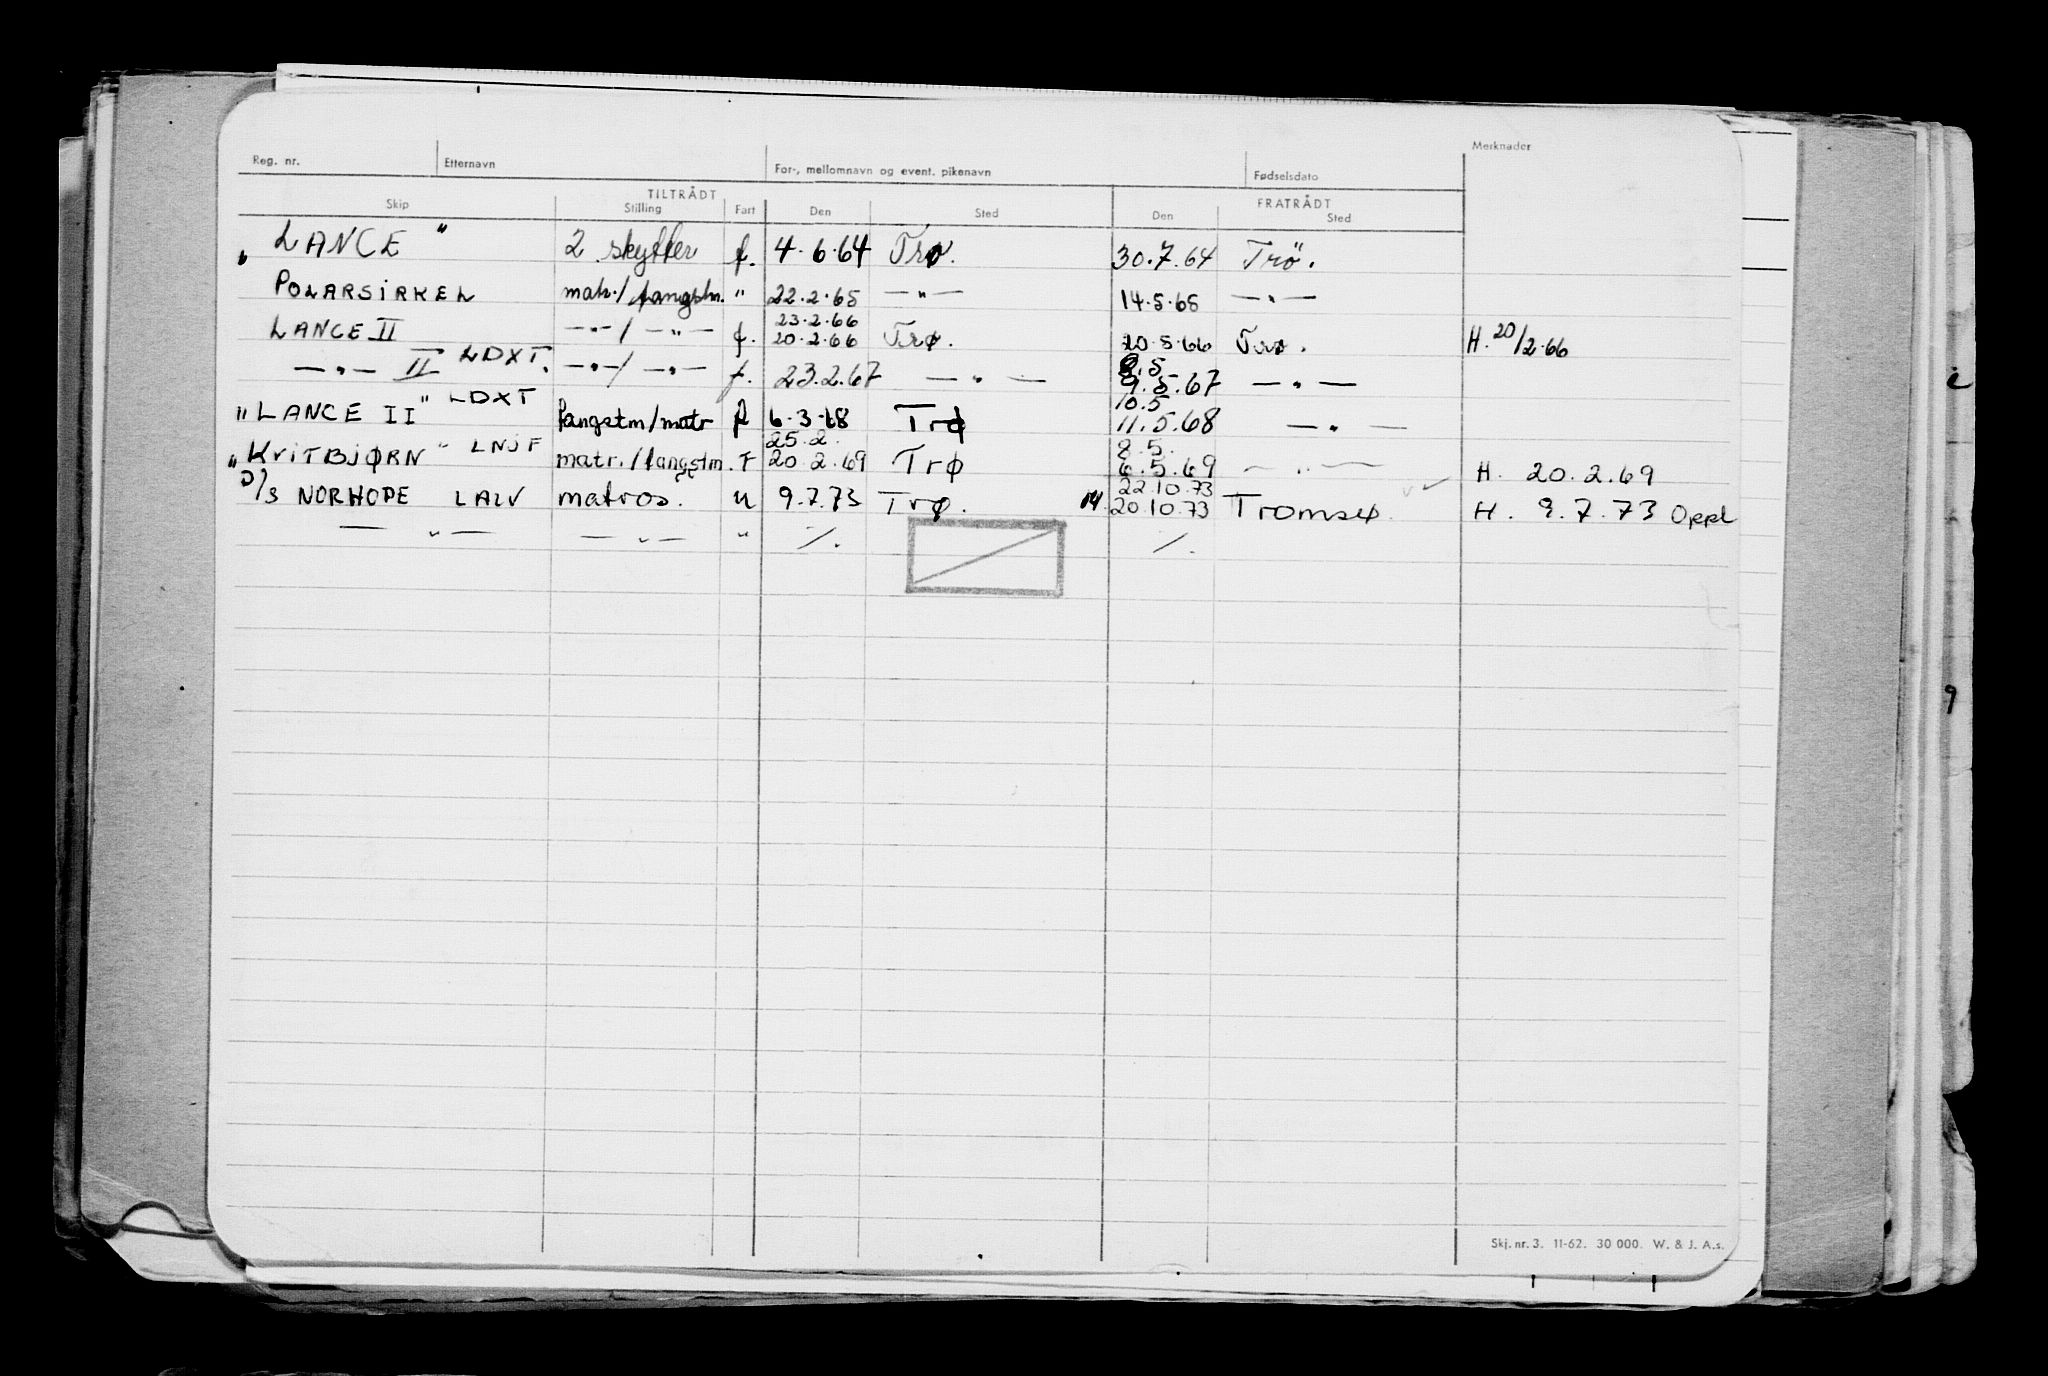 Reg. nr. Etternavn For-, mellomnavn og event. pikenavn Fødselsdato Merknader
TILTRÅDT FRATRÅDT
Skip Stilling Fart Den Sted Den Sted
„ LANCE " 2 skytter f. 4.6.64 Trø. 30.7.64 Trö.
POLARSIRKEL matr./fangstm. " 22.2.65 —"— 14.5.65 —"—
23.2.66
LANCE II —"—/—"— f. 20.2.66 Trø. 20.5.66 Trø. H. 20/2.66
8.5
—"— II LDXT. —"—/—"— f. 23.2.67 —"— 9.5.67 —"—
10.5
"LANCE II" LDXT fangstm/matr f 6.3.68 Trø 11.5.68 —"—
25.2. 8.5.
„KVITBJØRN" LNJF matr./fangstm. F 20.2.69 Trø 6.5.69 —"— H. 20.2.69
22.10.73
D/S NORHOPE LALV matros. u 9.7.73 Trø. M. 20.10.73 Tromsø. H. 9.7.73 Oppl
—"— —"— " /. /.
Skj. nr. 3. 11-62. 30 000. W. & J. A.s.